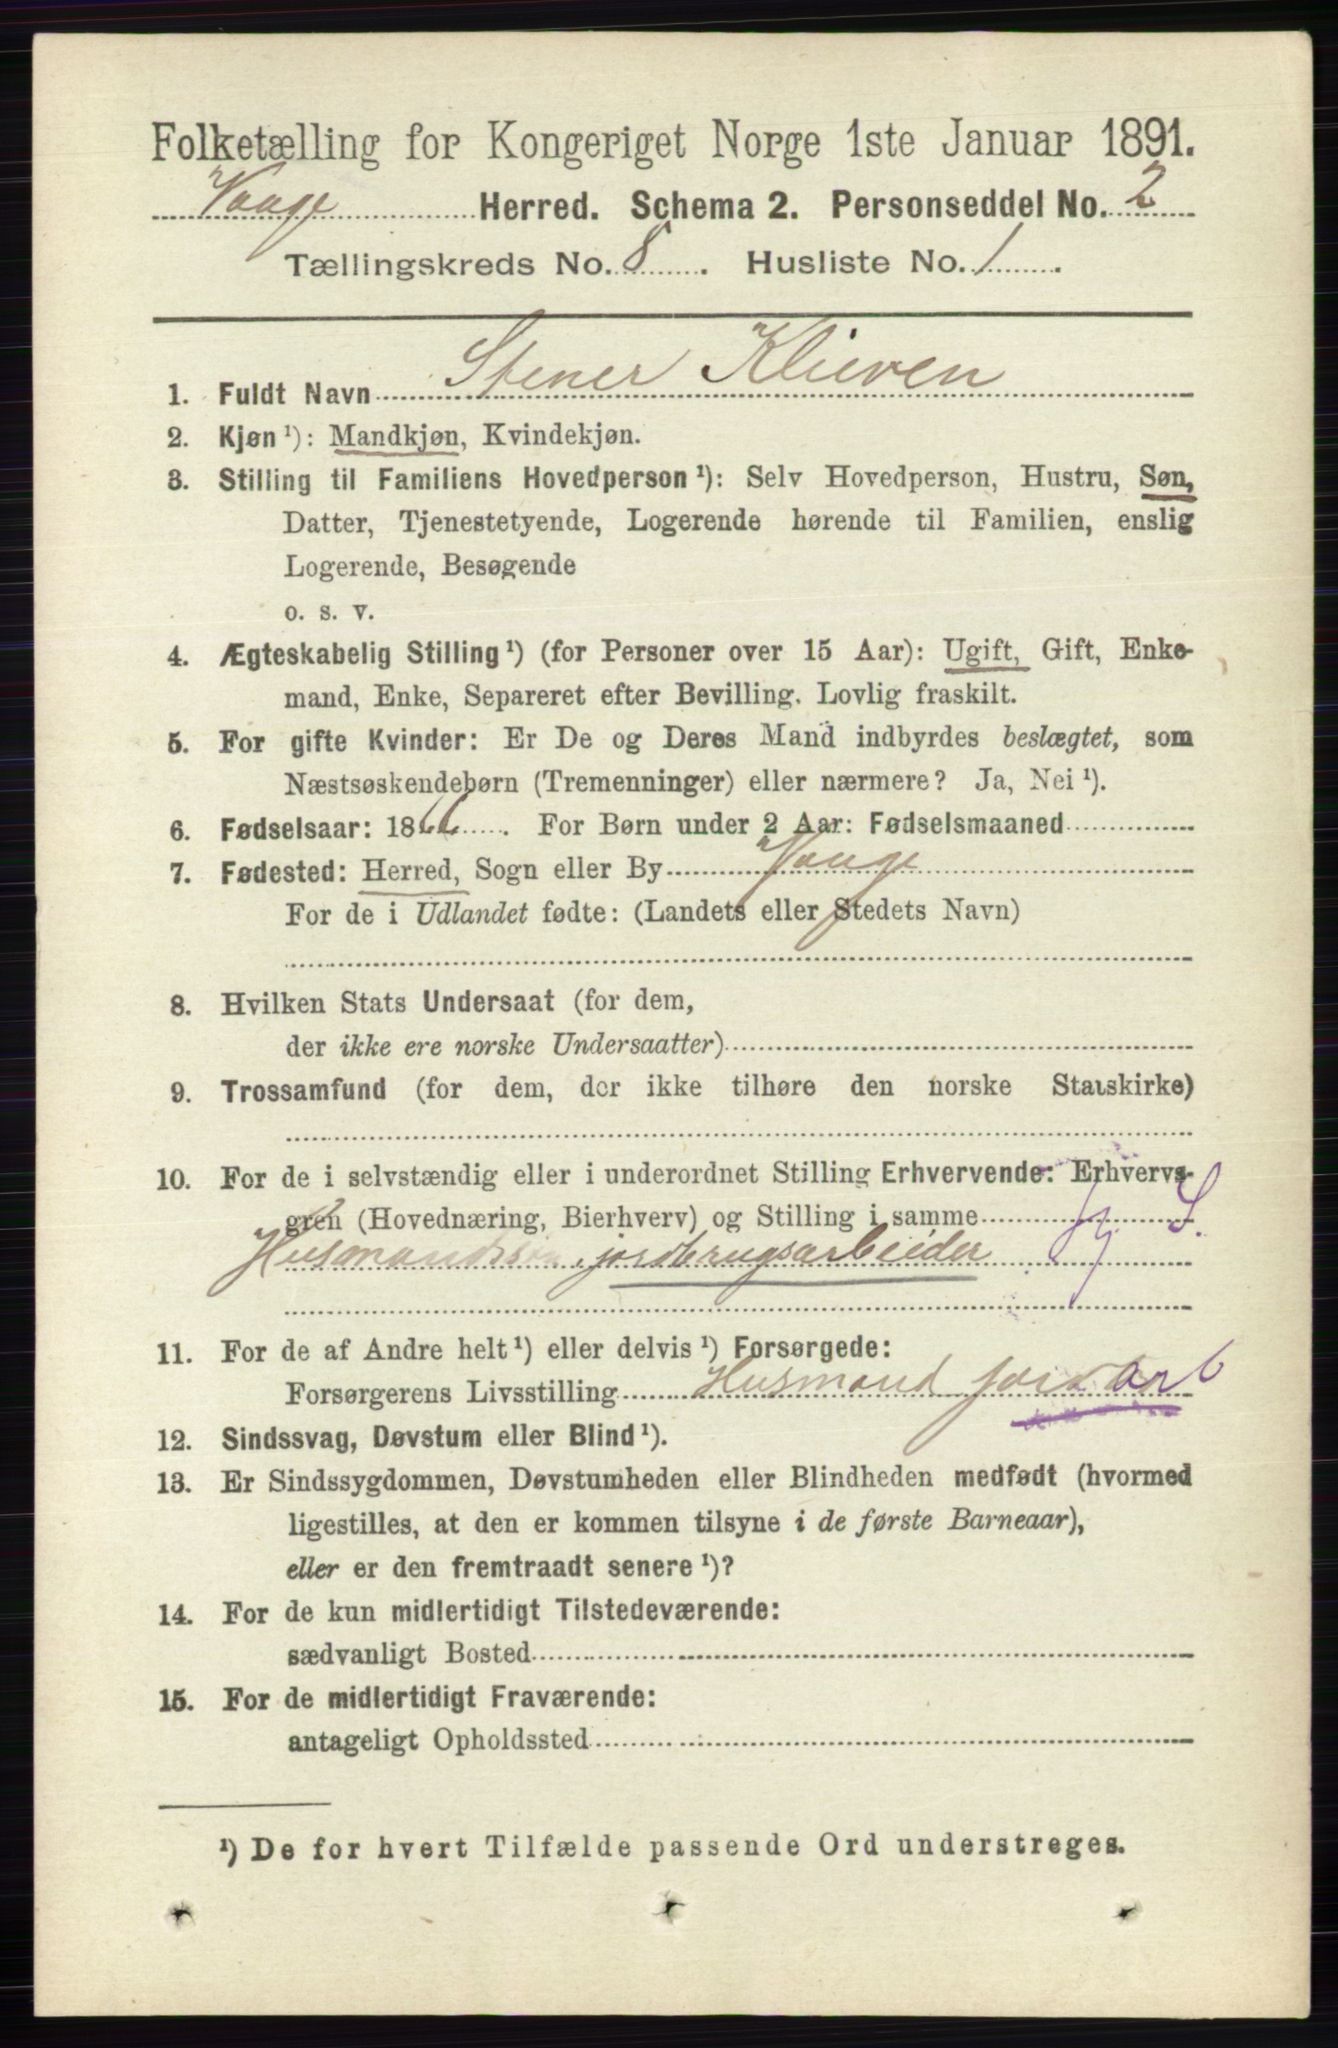 Folketælling for Kongeriget Norge 1ste Januar 1891.
Vaage Herred. Schema 2. Personseddel No. 2
Tællingskreds No. 8. Husliste No. 1.
1. Fuldt Navn Stener Klieven
2. Kjøn ¹): Mandkjøn, Kvindekjøn.
3. Stilling til Familiens Hovedperson ¹): Selv Hovedperson, Hustru, Søn,
Datter, Tjenestetyende, Logerende hørende til Familien, enslig
Logerende, Besøgende
o. s. v.
4. Ægteskabelig Stilling ¹) (for Personer over 15 Aar): Ugift, Gift, Enke-
mand, Enke, Separeret efter Bevilling. Lovlig fraskilt.
5. For gifte Kvinder: Er De og Deres Mand indbyrdes beslægtet, som
Næstsøskendebørn (Tremenninger) eller nærmere? Ja, Nei ¹).
6. Fødselsaar: 1866. For Børn under 2 Aar: Fødselsmaaned
7. Fødested: Herred, Sogn eller By Vaage
For de i Udlandet fødte: (Landets eller Stedets Navn)
8. Hvilken Stats Undersaat (for dem,
der ikke ere norske Undersaatter)
9. Trossamfund (for dem, der ikke tilhøre den norske Statskirke)
10. For de i selvstændig eller i underordnet Stilling Erhvervende: Erhvervs-
gren (Hovednæring, Bierhverv) og Stilling i samme S.
Husmandssøn, jordbrugsarbeider
11. For de af Andre helt ¹) eller delvis ¹) Forsørgede:
Forsørgerens Livsstilling Husmand jordarb
12. Sindssvag, Døvstum eller Blind ¹).
13. Er Sindssygdommen, Døvstumheden eller Blindheden medfødt (hvormed
ligestilles, at den er kommen tilsyne i de første Barneaar),
eller er den fremtraadt senere ¹)?
14. For de kun midlertidigt Tilstedeværende:
sædvanligt Bosted
15. For de midlertidigt Fraværende:
antageligt Opholdssted
¹) De for hvert Tilfælde passende Ord understreges.